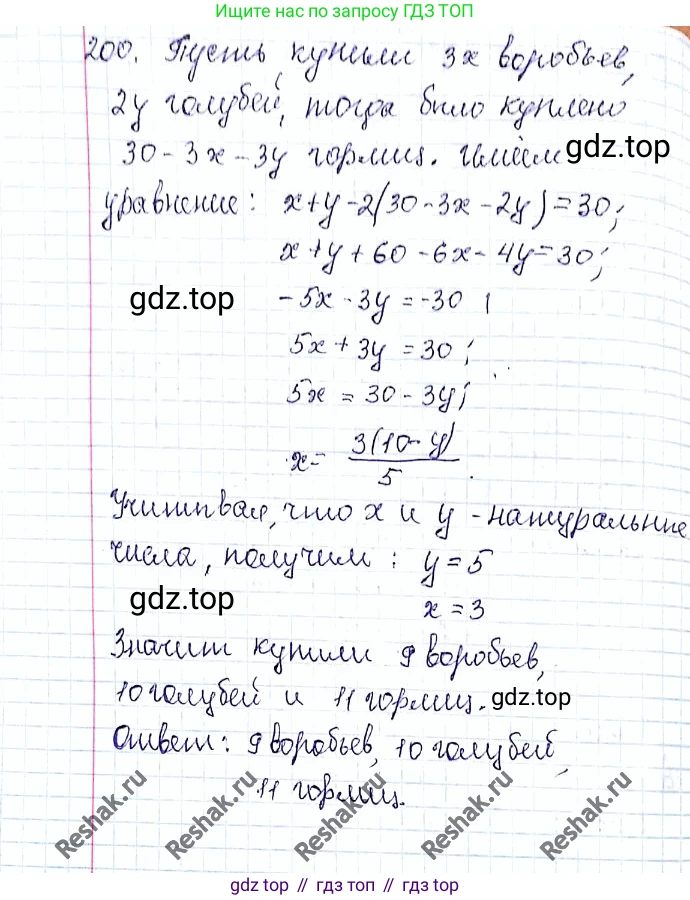 Ищите нас по запросу ГДЗ ТОП
200. Пусть купили 3x воробьев,
2y голубей, тогда было куплено
30 - 3x - 3y горлиц. Имеем gdz.top
уравнение: x + y - 2(30 - 3x - 2y) = 30;
x + y + 60 - 6x - 4y = 30;
gdz.top -5x - 3y = -30;
5x + 3y = 30;
5x = 30 - 3y;
x = 3(10 - y)/5.
Учитывая, что x и y - натуральные
числа, получим: y = 5
gdz.top x = 3
Значит купили 9 воробьев,
10 голубей и 11 горлиц. gdz.top
Ответ: 9 воробьев, 10 голубей,
11 горлиц.
Reshak.ru Reshak.ru Reshak.ru Reshak.ru Reshak.ru
gdz.top // гдз топ // gdz top // гдз.топ